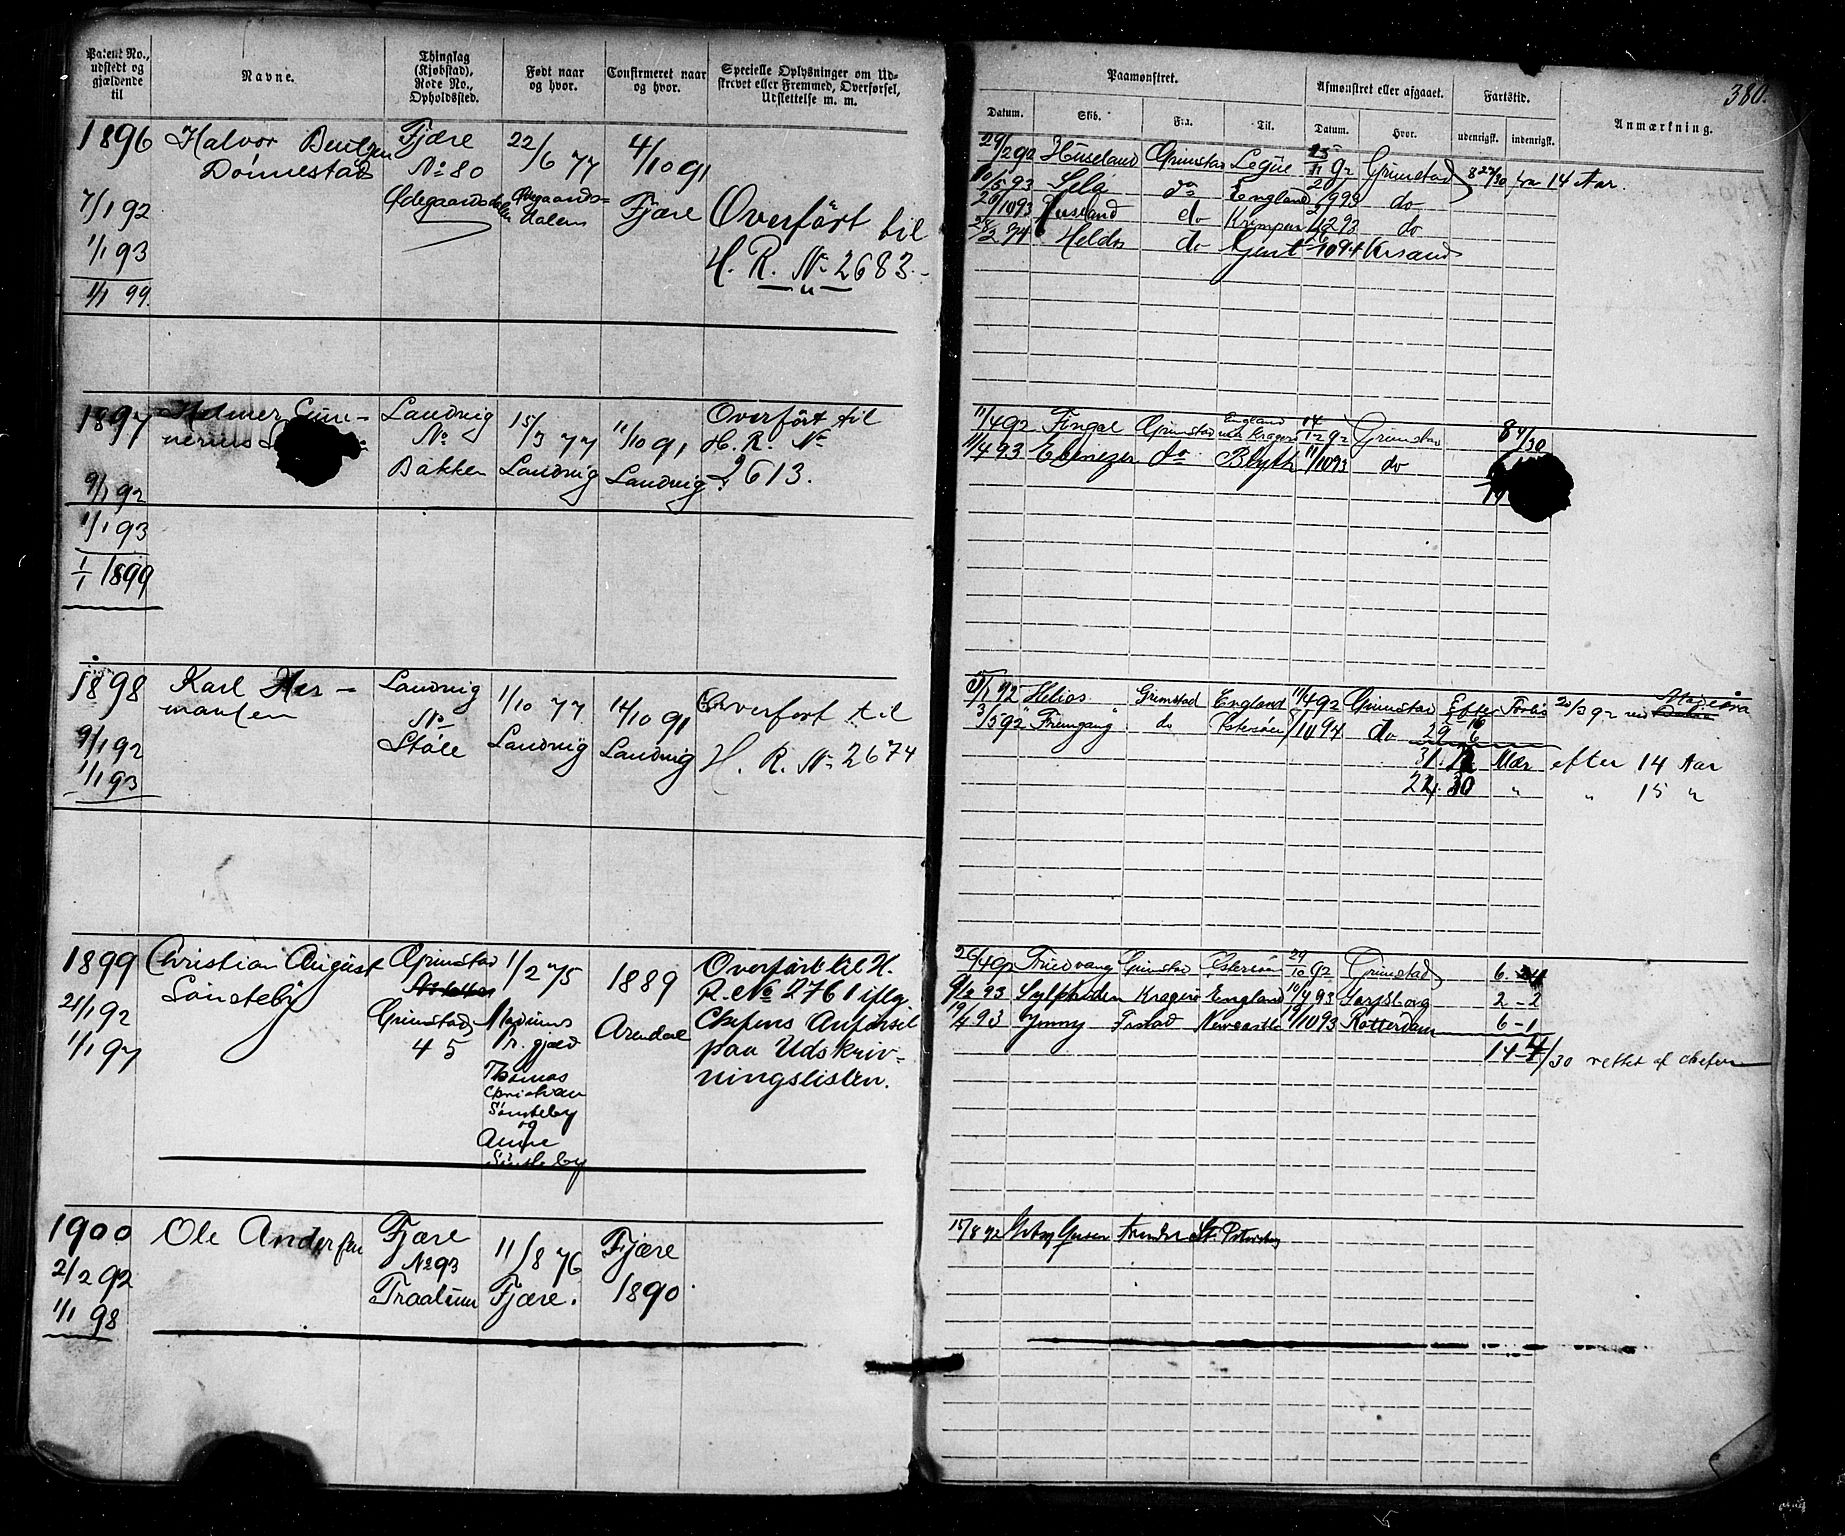 380.
Patent No., udstedt og gjældende til
Navne.
Thinglag (Kjøbstad), Rode No., Opholdssted.
Født naar og hvor.
Confirmeret naar og hvor.
Specielle Oplysninger om Udskrevet eller Fremmed, Overførsel, Udslettelse m. m.
Paamønstret.
Afmønstret eller afgaaet.
Fartstid.
Anmærkning.
Datum.
Skib.
Fra.
Til.
Datum.
Hvor.
udenrigsk.
indenrigsk.
1896
Halvor Bentzen
Dønnestad
7/1 92
1/1 93
1/1 99.
Fjære
No 80
Ødegaardsdalen
22/6 77
Ødegaards-
dalen
4/10 91
Fjære
Overført til
H. R. No 2683.
29/2 92 Huseland Grimstad 25/11 92 Grimstad 8 22/30 14 Aar.
10/5 93 do England 93 do
2/10 93 do 12 93 do
2 94 do Gent 10 94 Krsand
1897
Helmer Gun-
nerius
9/1 92
1/1 93
1/1 1899
Landvig
No
Bakken
15/3 77
Landvig
11/10 91
Landvig
Overført til
H. R. No
2613.
11/4 92 Fingal Grimstad England via Kragerø 14/12 92 Grimstad 8 7/30
11/4 93 Ebenezer do Blyth 11/10 93 do
1898
Karl Her-
mansen
9/1 92
1/1 93
Landvig
No
Støle
1/10 77
Landvig
14/10 91
Landvig
Overført til
H. R. No 2674
/1 92 Helios Grimstad England 11/4 92 Grimstad Efter Forlis 20/3 92 ved Madeira
3/5 92 Fremgang do Østersøen /10 94 do 29 6
31. Mdr efter 14 Aar
24. 30 " " 15 "
1899
Christian August
Sønsteby
21/1 92
1/1 97
Grimstad
Grimstad
45
1/2 75
n. gjæld
Thomas
Christian
Sønsteby
og
Anne
Sønsteby
1889
Arendal
Overført til H.
R. No 2761 iflg.
Chefens Anførsel
paa Udskriv-
ningslisten.
26/4 92 Fredvang Grimstad Østersøen 29/10 92 Grimstad 6.
93 Sylphiden Kragerø England 10/4 93 Sarpsborg 2 - 2
19/4 93 Jenny Frstad Newcastle 19/10 93 Rotterdam 6 - 1
14 4/30 rettet af chefen
1900
Ole Andersen
2/2 92
1/1 98
Fjære
No 93
Traalum
11/8 76
Fjære.
Fjære
1890
15/8 92 St. Petersburg